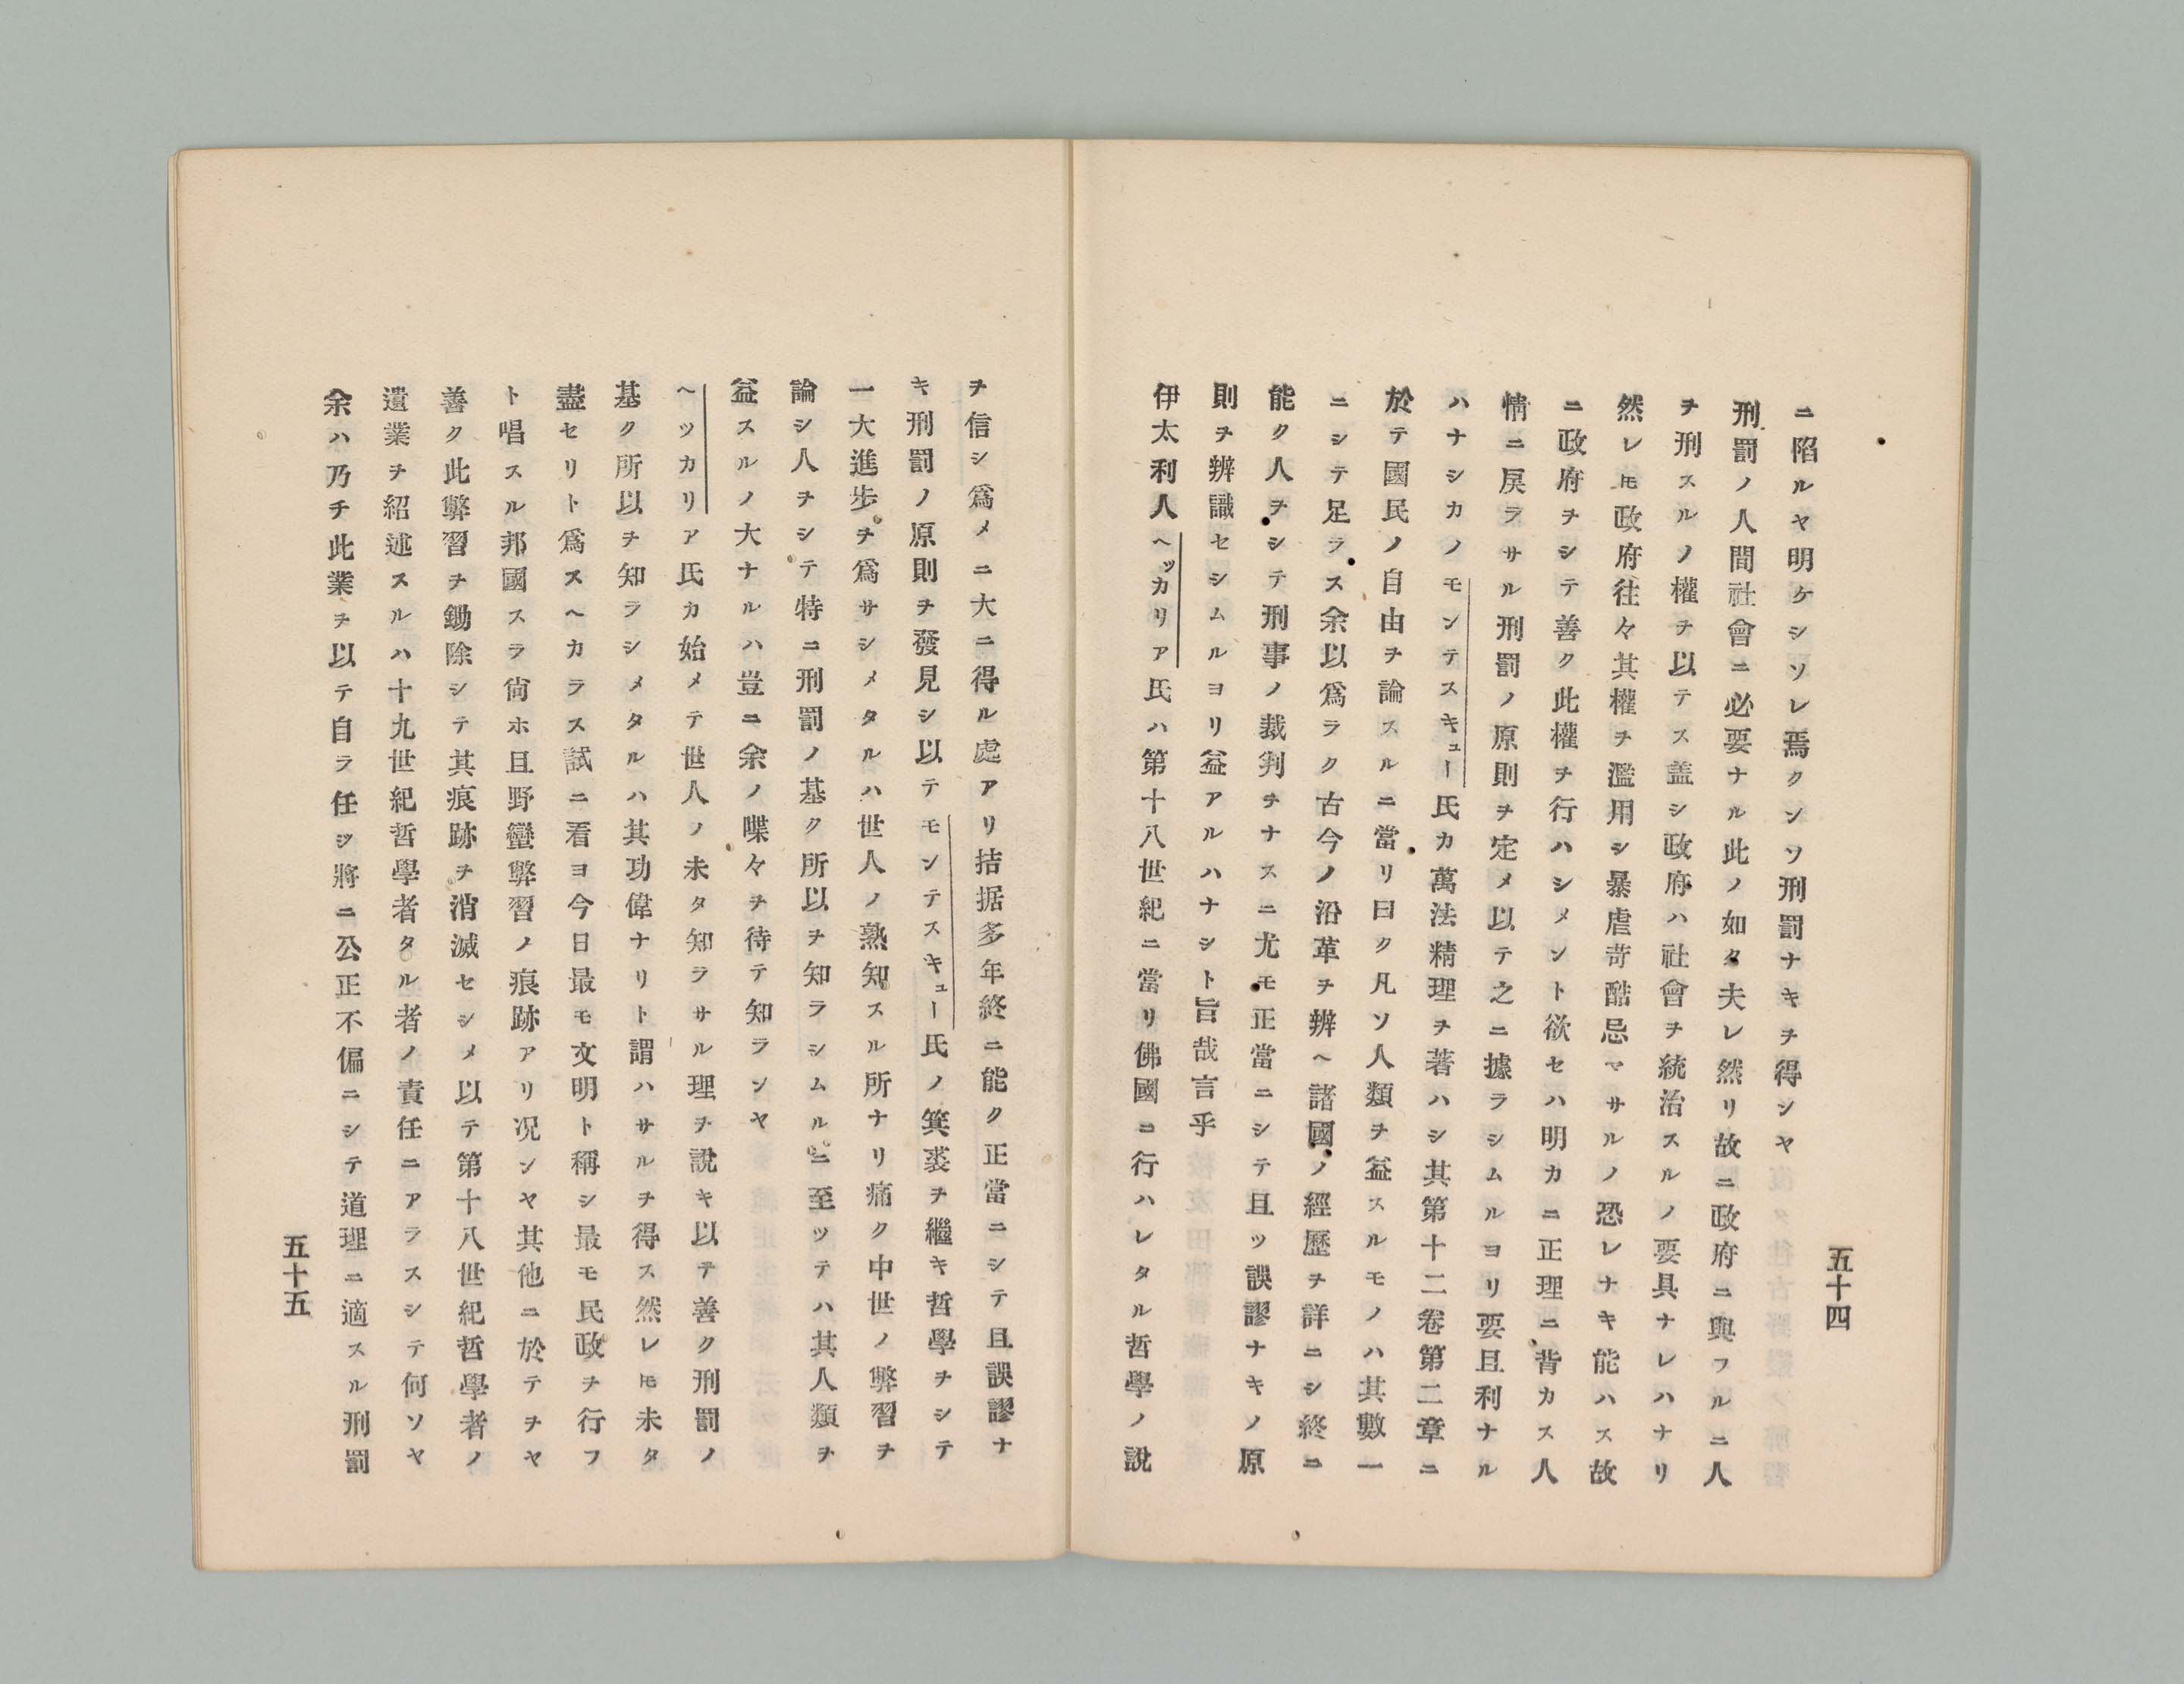 ニ陷ルヤ明ケシソレ焉クンソ刑罰ナキヲ得ンヤ
刑罰ノ人間社會ニ必要ナル此ノ如タ夫レ然リ故ニ政府ニ與フルニ人
ヲ刑スルノ權ヲ以テス盖シ政府ハ社會ヲ統治スルノ要具ナレハナリ
然レ𪜈政府往々其權ヲ濫用シ暴虐苛酷忌マサルノ恐レナキ能ハス故
ニ政府ヲシテ善ク此權ヲ行ハシメント欲セハ明カニ正理ニ背カス人
情ニ戻ラサル刑罰ノ原則ヲ定メ以テ之ニ據ラシムルヨリ要且利ナル
ハナシカノモンテスキュー氏カ萬法精理ヲ著ハシ其第十二卷第二章ニ
於テ國民ノ自由ヲ論スルニ當リ曰ク凡ソ人類ヲ益スルモノハ其數一
ニシテ足ラス余以爲ラク古今ノ沿革ヲ辨ヘ諸國ノ經歷ヲ詳ニシ終ニ
能ク人ヲシテ刑事ノ裁判ヲナスニ尤モ正當ニシテ且ツ誤謬ナキノ原
則ヲ辨識セシムルヨリ益アルハナシト旨哉言乎
伊太利人ヘッカリア氏ハ第十八世紀ニ當リ佛國ニ行ハレタル哲學ノ說
五十四
ヲ信シ爲メニ大ニ得ル處アリ拮据多年終ニ能ク正當ニシテ且誤謬ナ
キ刑罰ノ原則ヲ發見シ以テモンテスキュー氏ノ箕裘ヲ繼キ哲學ヲシテ
一大進步ヲ爲サシメタルハ世人ノ熟知スル所ナリ痛ク中世ノ弊習ヲ
論シ人ヲシテ特ニ刑罰ノ基ク所以ヲ知ラシムルニ至ッテハ其人類ヲ
益スルノ大ナルハ豈ニ余ノ喋々ヲ待テ知ランヤ
ヘツカリア氏カ始メテ世人ノ未タ知ラサル理ヲ說キ以テ善ク刑罰ノ
基ク所以ヲ知ラシメタルハ其功偉ナリト謂ハサルヲ得ス然レ𪜈未タ
盡セリト爲スヘカラス試ニ看ヨ今日最モ文明ト稱シ最モ民政ヲ行フ
ト唱スル邦國スラ尙ホ且野蠻弊習ノ痕跡アリ况ンヤ其他ニ於テヲヤ
善ク此弊習ヲ鋤除シテ其痕跡ヲ消滅セシメ以テ第十八世紀哲學者ノ
遺業ヲ紹述スルハ十九世紀哲學者タル者ノ責任ニアラスシテ何ソヤ
余ハ乃チ此業ヲ以テ自ラ任シ將ニ公正不偏ニシテ道理ニ適スル刑罰
五十五